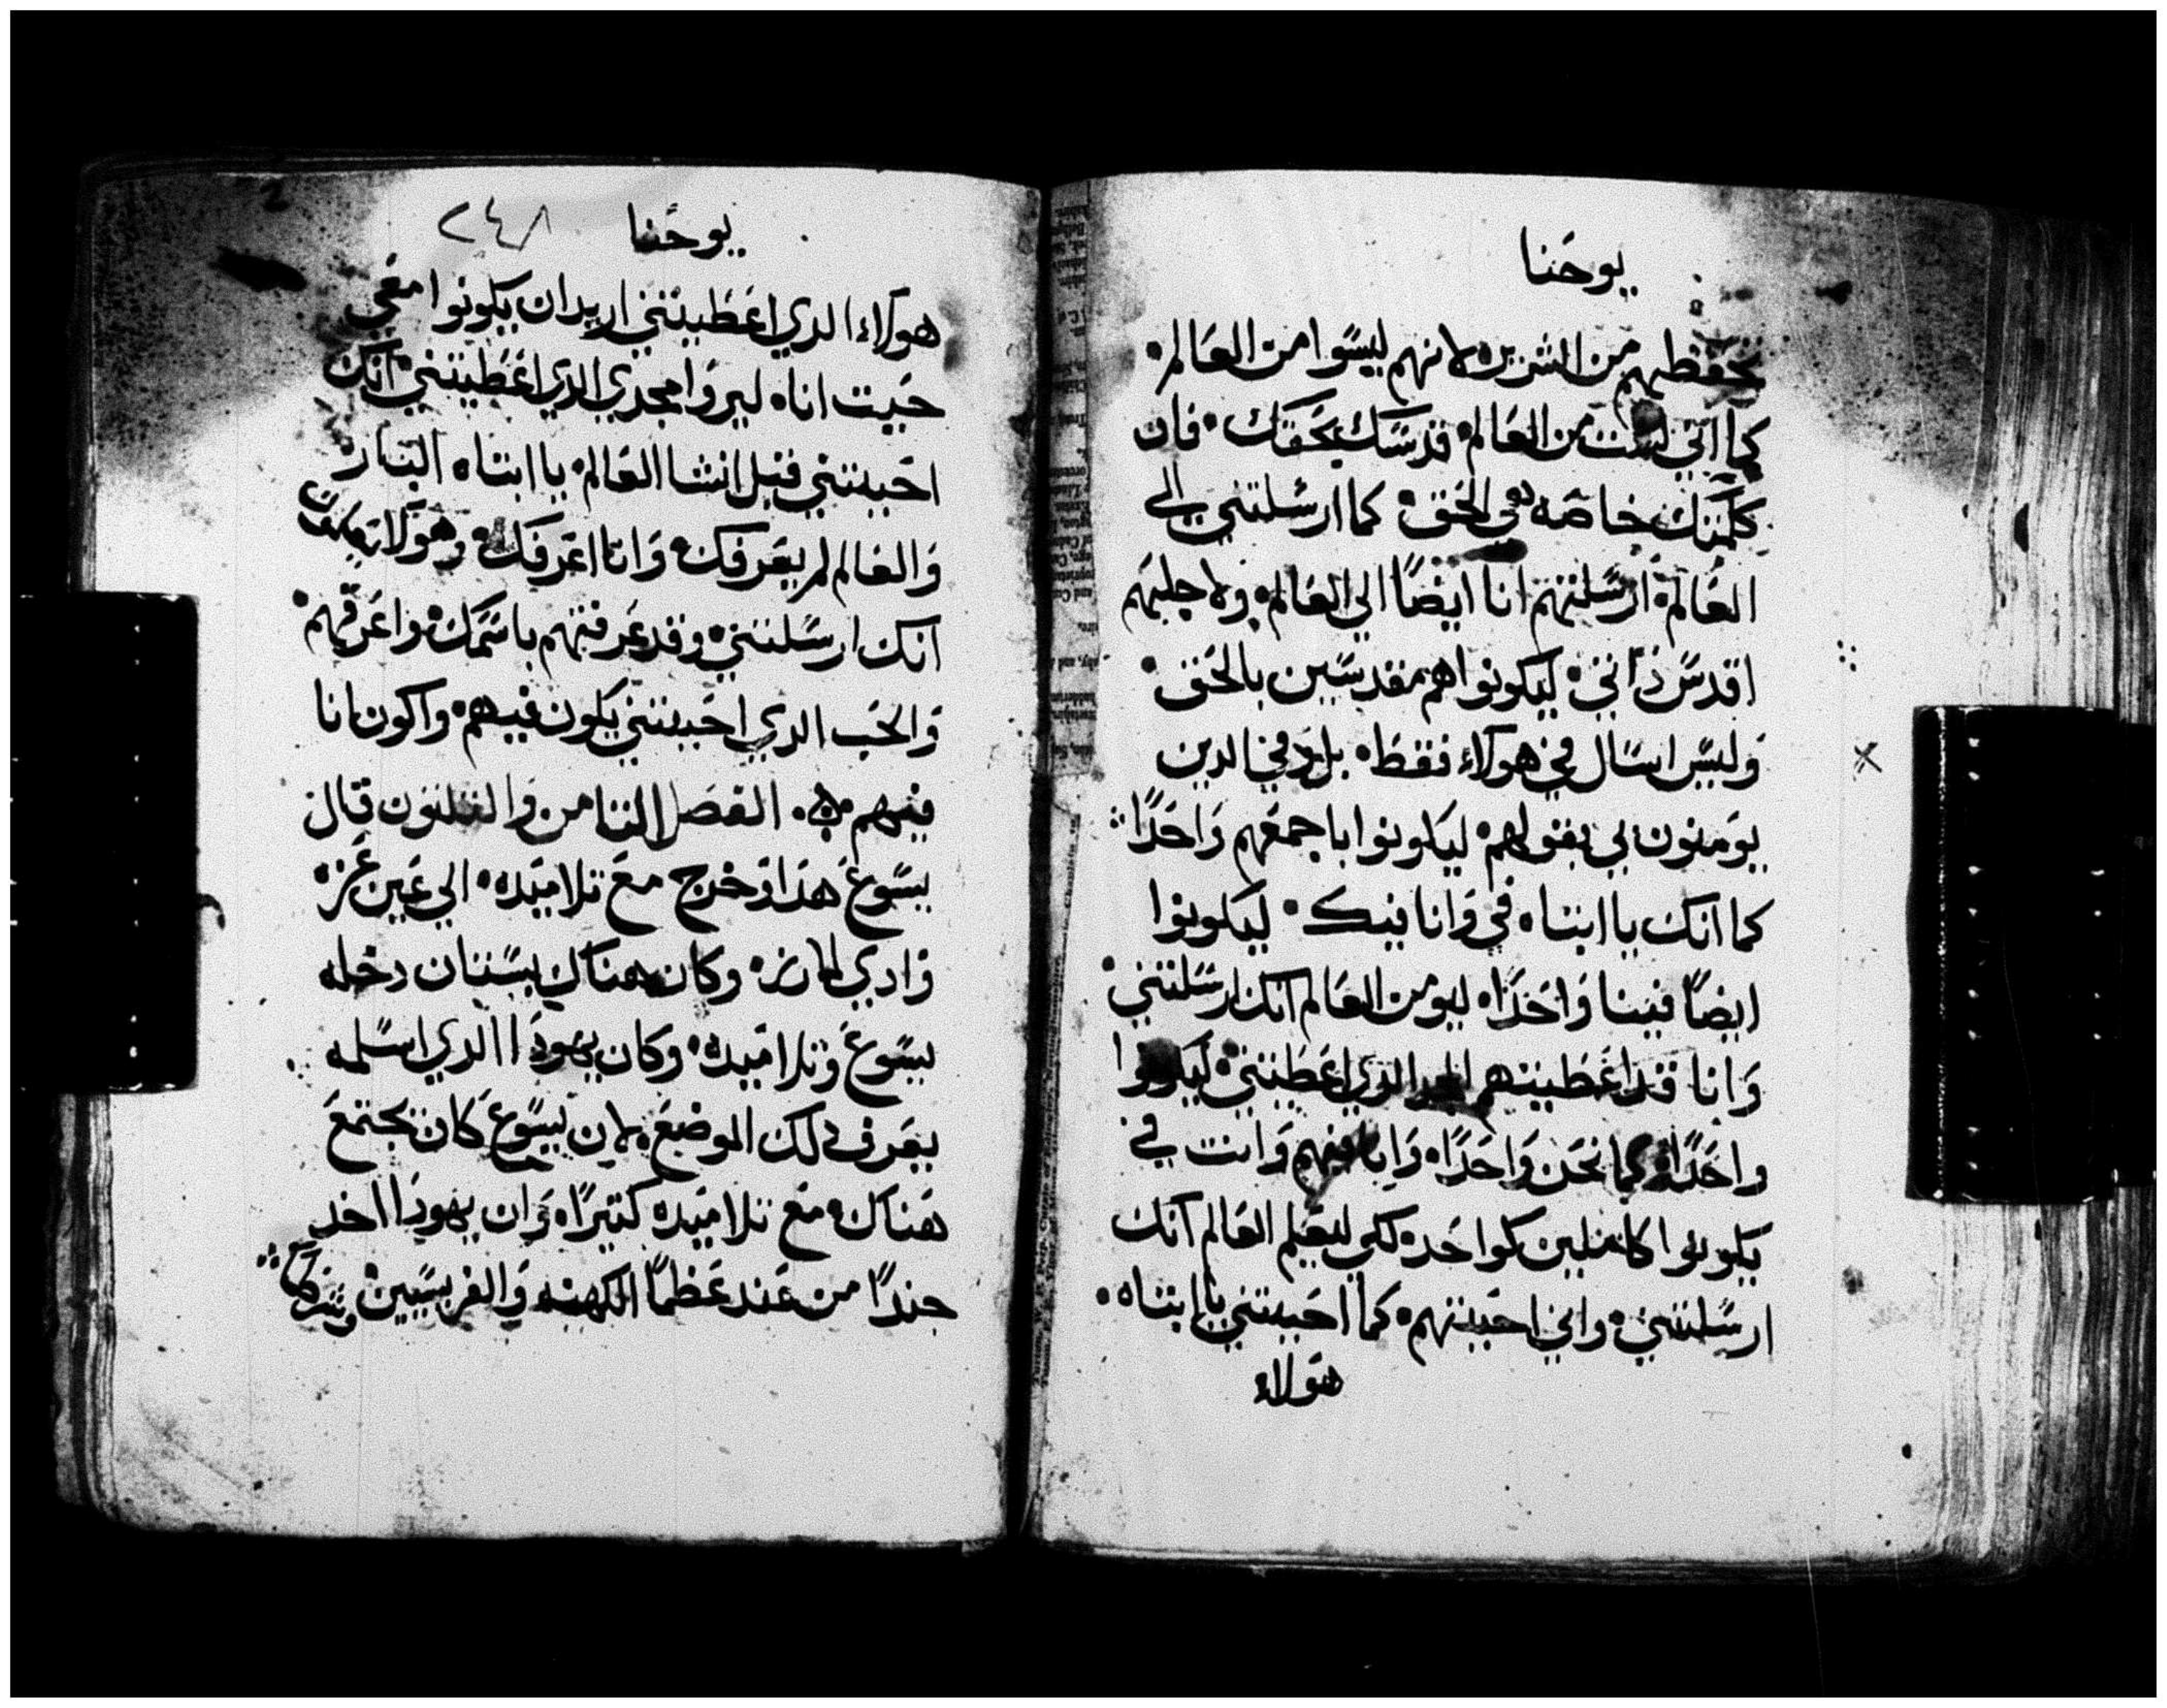 يوحنا
تحفظهم من الشرير لانهم ليسوا من العالم
كما اني لست من العالم قدسك بحقك فان
كلمتك خاصه هي الحق كما ارسلتني الي
العالم ارسلتهم انا ايضًا الي العالم ولاجلهم
اقدس ذاتي ليكونوا هم مقدسين بالحق
وليس اسال في هولاء فقط بل وفي الدين
يومنون بي بقولهم ليكونوا باجمعهم واحدًا
كما انك يا ابتاه في وانا فيك ليكونوا
ايضًا فينا واحدًا ليومن العالم انك ارسلتني
وانا قد اعطيتهم المجد الدي اعطيتني ليكونوا
واحدًا كما نحن واحدًا وانا فيهم وانت في
يكونوا كاملين كواحد لكي ليعلم العالم انك
ارسلتني واني احببتهم كما احببتني يا ابتاه
هولاء
يوحنا ٢٤٨
هولاء الدي اعطيتني اريد ان يكونوا معي
حيت انا ليروا مجدي الدي اعطيتني انك
احببتني قبل انشا العالم يا ابتاه البار
والعالم لم يعرفك وانا اعرفك وهولا يعلمون
انك ارسلتني وقد عرفتهم باسمك واعرفهم
والحب الدي احببتني يكون فيهم واكون انا
فيهم الفصل التامن والتلتون قال
يسوع هذا وخرج مع تلاميده الي عبر
وادي الارز وكان هناك بستان دخله
يسوع وتلاميده وكان يهودا الدي اسلمه
يعرف دلك الموضع لان يسوع كان يجتمع
هناك مع تلاميده كتيرًا وان يهودا اخد
جندًا من عند عظما الكهنه والفريسيين وشرطًا